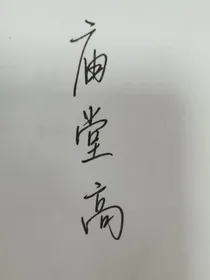 庙堂高